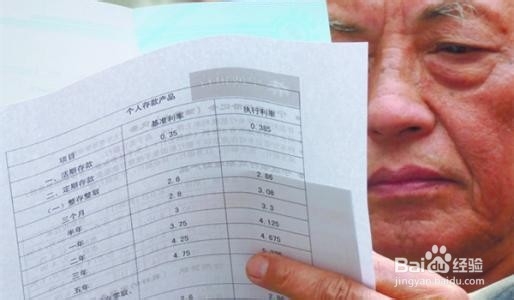 个人存款产品
项目 基准利率 执行利率
一、活期存款 0.35 0.385
二、定期存款
(一)整存整取
三个月 2.6 2.86
半年 2.8 3.08
一年 3 3.3
二年 3.75 4.125
三年 4.25 4.675
五年 4.75
Baidu经验
jingyan.baidu.com